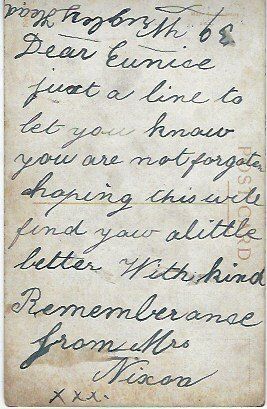 Dear Eunice
just a line to
let you know
you are not forgoten
hoping this will
find yow alittle
better With kind
Rememberanse
from Mrs
Nixon
xxx.
POSTCARD